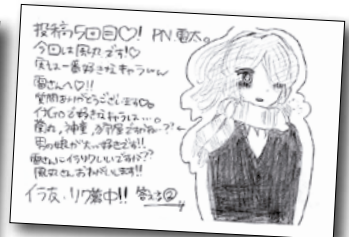 投稿5回目♡! P.N.竜太。
今回は風丸です!♡
実は一番好きなキャラ
雷さんへ♡!!
質問ありがとうございます♡。
イナGOで好きなキャラは…。
蘭丸、神童、
男の娘が大好きです!!
雷さんにイラリクしいいですか??
風丸さんおねがいします!!
イラ友、リク募中!! 答える②